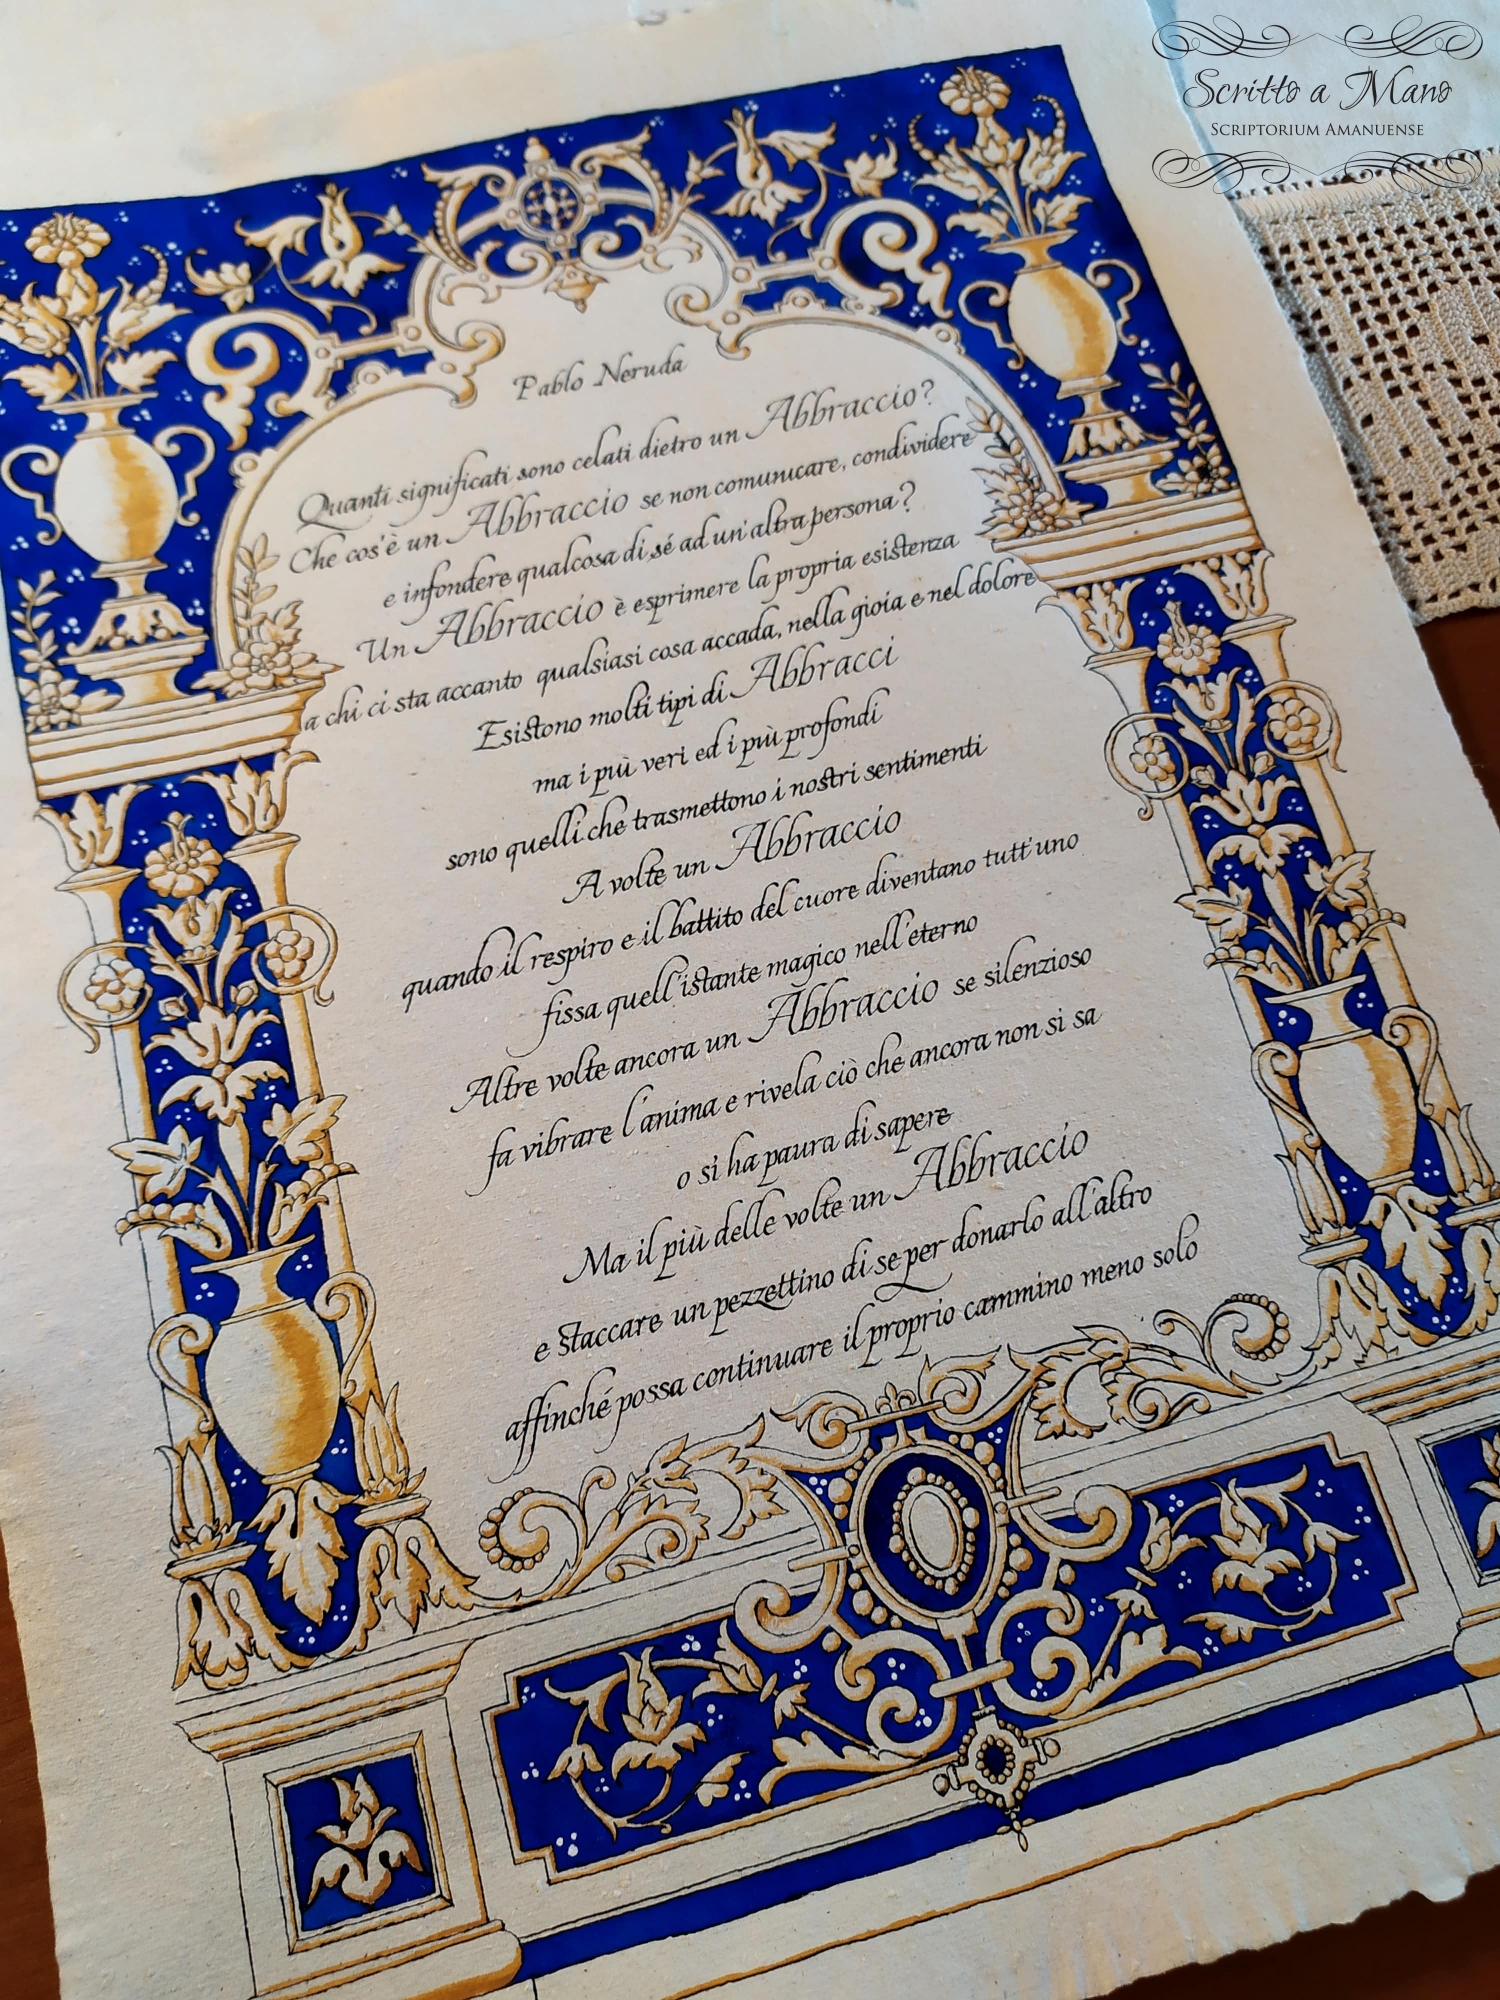 Scritto a Mano
SCRIPTORIUM AMANUENSE
Pablo Neruda
Quanti significati sono celati dietro un Abbraccio?
Che cos'è un Abbraccio se non comunicare, condividere
e infondere qualcosa di sé ad un'altra persona?
Un Abbraccio è esprimere la propria esistenza
a chi ci sta accanto qualsiasi cosa accada, nella gioia e nel dolore
Esistono molti tipi di Abbracci
ma i più veri ed i più profondi
sono quelli che trasmettono i nostri sentimenti
A volte un Abbraccio
quando il respiro e il battito del cuore diventano tutt'uno
fissa quell'istante magico nell'eterno
Altre volte ancora un Abbraccio se silenzioso
fa vibrare l'anima e rivela ciò che ancora non si sa
o si ha paura di sapere
Ma il più delle volte un Abbraccio
e staccare un pezzettino di se per donarlo all'altro
affinché possa continuare il proprio cammino meno solo